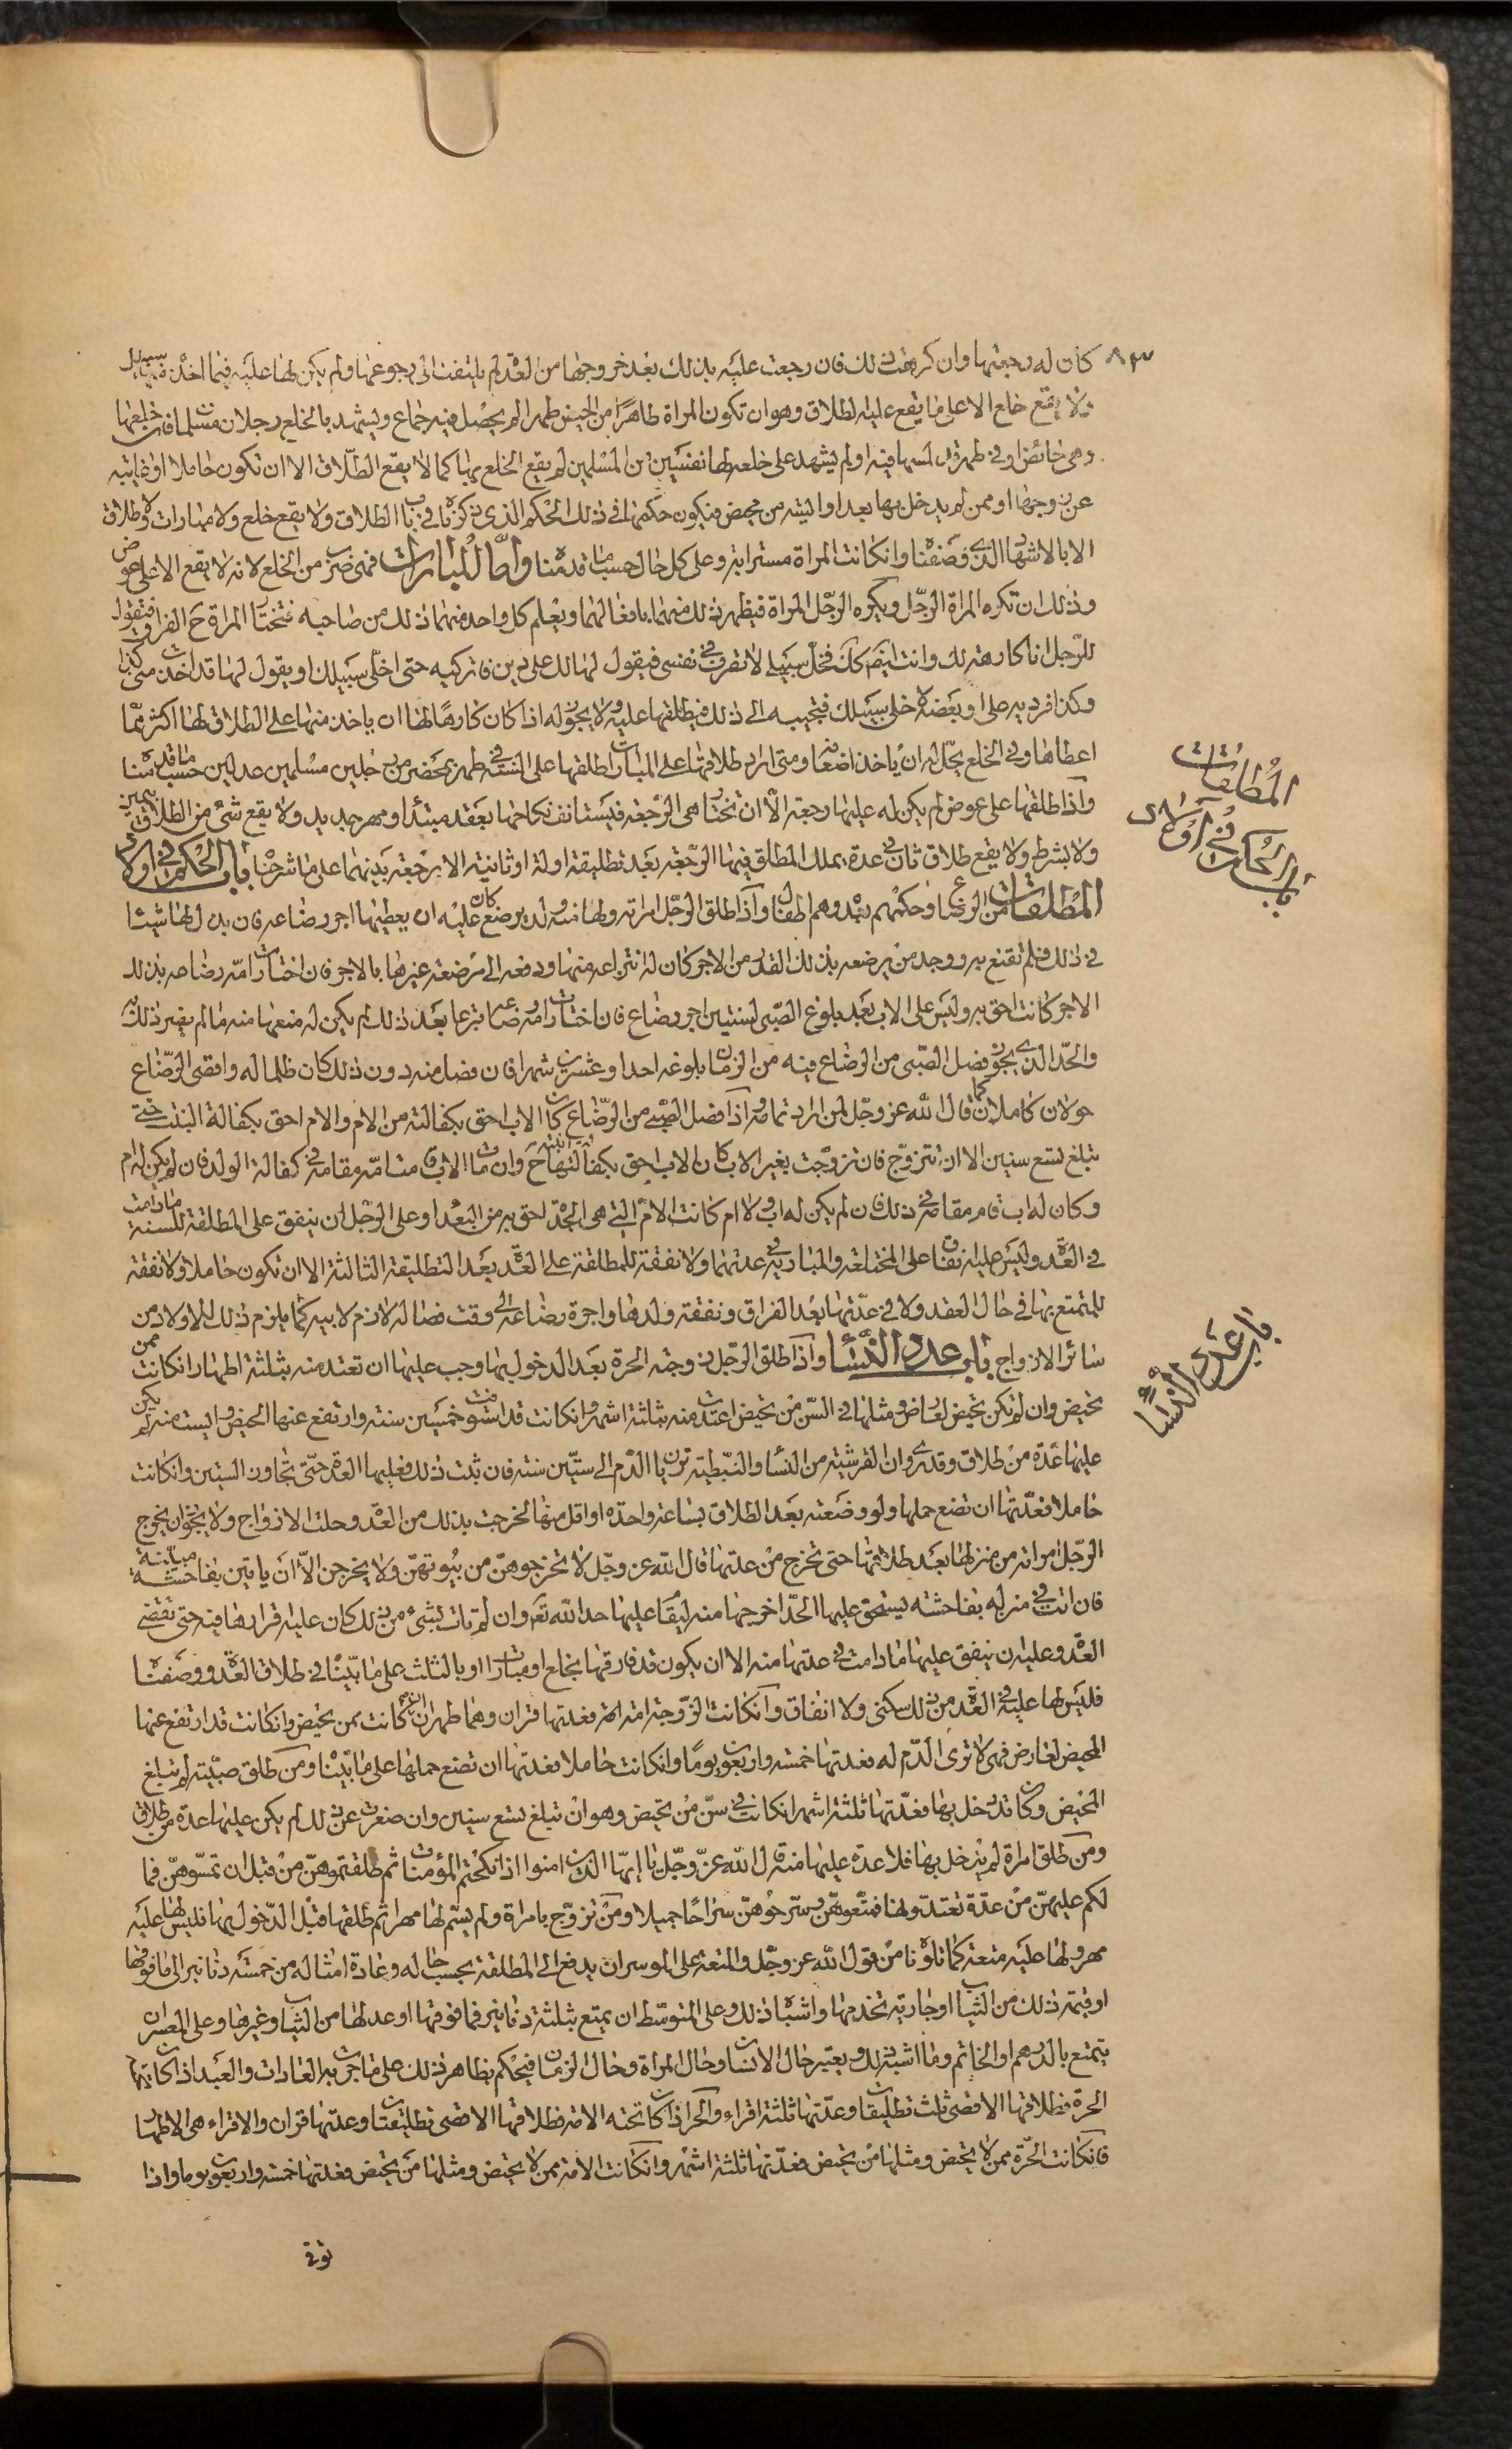 كان له رجعتها وان كرهت ذلك فان رجعت عليه بذلك بعد خروجها من العدة لم يلتفت الى رجوعها ولم يكن لها عليه فيما اخذه سبيل
ولا يقع خلع الا على ما يقع عليه الطلاق وهو ان تكون المراة طاهرا من الحيض طهرا لم يحصل فيه جماع ويشهد بالخلع رجلان مسلمان فان خلعها
وهى حائض او في طهر قد لمسها فيه او لم يشهد على خلعه لها نفسين من المسلمين لم يقع الخلع بها كما لا يقع الطلاق الا ان تكون حاملا او غايبه
عن زوجها او ممن لم يدخل بها بعد او ايسه من محيض فيكون حكمها في ذلك الحكم الذى ذكرناه في باب الطلاق ولا يقع خلع ولا مبارات ولا طلاق
الا بالاشهاد الذى وصفنا وان كانت المراة مسترابه وعلى كل حال حسب ما قدمنا واما المبارات فهى ضرب من الخلع لانه لا يقع الا على عوض
وذلك ان تكره المراة الرجل ويكره الرجل المراة فيظهر ذلك منهما بافعالهما ويعلم كل واحد منهما ذلك من صاحبه فتختار المراة ح الفراق فتقول
للرجل انا كارهة لك وانت ايضا كك فخل سبيلى لاتصرف في نفسى فيقول لها لك على دين فاتركيه حتى اخلى سبيلك او يقول لها قد اخذت منى كذا
وكذا فرديه على او بعضه لاخلى سبيلك فتجيبه الى ذلك فيطلقها عليه ولا يجوز له اذا كان كارها لها ان ياخذ منها على الطلاق لها اكثر مما
اعطاها وفي الخلع يحل له ان ياخذ اضعافه ومتى اراد طلاقها على المبارات طلقها على السنة في طهر بمحضر من رجلين مسلمين عدلين حسب ما قدمنا
واذا طلقها على عوض لم يكن له عليها رجعة الا ان تختار هى الرجعة فيستانف نكاحها بعقد مبتدأ ومهر جديد ولا يقع شئ من الطلاق بيمين
ولا بشرط ولا يقع طلاق ثان في عدة يملك المطلق فيها الرجعة بعد تطليقة اولة او ثانية الا برجعة بينهما على ما شرحنا باب الحكم في اولاد
المطلقات من الرضاع وحكمهم بعده وهم اطفال واذا طلق الرجل امراته ولها منه ولد يرضع كان عليه ان يعطيها اجر رضاعه فان بذل لها شيئا
في ذلك فلم تقنع به ووجد من يرضعه بذلك القدر من الاجر كان له انتزاعه منها ودفعه الى مرضعة غيرها بالاجر فان اختارت امه رضاعه بذلك
الاجر كانت احق به وليس على الاب بعد بلوغ الصبى لسنتين اجر رضاع فان اختارت امه رضاعه تبرعا بعد ذلك لم يكن له منعها منه ما لم يضر ذلك به
والحد الذى يجوز فصل الصبى من الرضاع فيه من الزمان بلوغه احدا وعشرين شهرا فان فصل منه دون ذلك كان ظلما له واقصى الرضاع
حولان كاملان كما قال الله عز وجل لمن اراد تمامه واذا فصل الصبى من الرضاع كان الاب احق بكفالته من الام والام احق بكفالة البنت حتى
تبلغ تسع سنين الا ان تتزوج فان تزوجت بغير الاب كان الاب احق بكفالتها ح وان مات الاب قامت امه مقامه في كفالة الولد فان لم يكن له ام
وكان له اب قام مقامه في ذلك فان لم يكن له اب ولا ام كانت الام التى هى الجدة احق به من البعداء وعلى الرجل ان ينفق على المطلقة للسنة ما دامت
في العدة وليس عليه نفقات على المختلعة والمبارية في عدتهما ولا نفقة للمطلقة على العدة بعد التطليقة الثالثة الا ان تكون حاملا ولا نفقة
للمتمتع بها في حال العقد ولا في عدتها بعد الفراق ونفقة ولدها واجرة رضاعه الى وقت فصاله لازم لابيه كما يلزم ذلك للاولاد من
سائر الازواج باب عدد النساء واذا طلق الرجل زوجته الحرة بعد الدخول بها وجب عليها ان تعتد منه بثلثة اطهار ان كانت ممن
تحيض وان لم تكن تحيض لعارض ومثلها في السن من تحيض اعتدت منه بثلثة اشهر وان كانت قد استوفت خمسين سنة وارتفع عنها الحيض وايست منه لم يكن
عليها عدة من طلاق وقد روى ان القرشية من النساء والنبطية تريان الدم الى ستين سنة فان ثبت ذلك فعليها العدة حتى تجاوز الستين وان كانت
حاملا فعدتها ان تضع حملها ولو وضعته بعد الطلاق بساعة واحدة او اقل منها لخرجت بذلك من العدة وحلت للازواج ولا يجوز ان يخرج
الرجل امراته من منزلها بعد طلاقها حتى تخرج من عدتها قال الله عز وجل لا تخرجوهن من بيوتهن ولا يخرجن الا ان ياتين بفاحشة مبينة
فان اتت في منزله بفاحشة يستحق عليها الحد اخرجها منه ليقام عليها حد الله تع وان لم تات بشئ من ذلك كان عليه قرارها فيه حتى تقضى
العدة وعليه ان ينفق عليها ما دامت في عدتها منه الا ان يكون قد فارقها بخلع او مبارات او بالثلث على ما بينا في طلاق العدة ووصفنا
فليس لها عليه في العدة من ذلك سكنى ولا انفاق وان كانت الزوجة امة فعدتها قران وهما طهران ان كانت ممن تحيض وان كانت قد ارتفع عنها
المحيض لعارض فهى لا ترى الدم له فعدتها خمسة واربعون يوما وان كانت حاملا فعدتها ان تضع حملها على ما بينا ومن طلق صبية لم تبلغ
المحيض وكان قد دخل بها فعدتها ثلثة اشهر ان كانت في سن من تحيض وهو ان تبلغ تسع سنين وان صغرت عن ذلك لم يكن عليها عدة من طلاق
ومن طلق امراة لم يدخل بها فلا عدة عليها منه قال الله عز وجل يا ايها الذين امنوا اذا نكحتم المؤمنات ثم طلقتموهن من قبل ان تمسوهن فما
لكم عليهن من عدة تعتدونها فمتعوهن وسرحوهن سراحا جميلا ومن تزوج بامراة ولم يسم لها مهرا ثم طلقها قبل الدخول بها فليس لها عليه
مهر ولها عليه متعة كما تلوناه من قول الله عز وجل والمتعة على الموسر ان يدفع الى المطلقة بحسب حاله وعادة امثاله من خمسة دنانير الى ما فوقها
او قيمة ذلك من الثياب او جارية تخدمها واشباه ذلك وعلى المتوسط ان يمتع بثلثة دنانير فما فوقها او عدلها من الثياب وغيرها وعلى المعسر ان
يتمتع بالدرهم او الخاتم وما اشبه ذلك ويعتبر حال الانسان وحال المراة وحال الزمان فيحكم بظاهر ذلك على ما جرت به العادات والعبد اذا كان تحته
الحرة فطلاقها الاقصى ثلث تطليقات وعدتها ثلثة اقراء والحر اذا كان تحته الامة فطلاقها الاقصى تطليقتان وعدتها قران والاقراء هى الاطهار
فان كانت الحرة ممن لا يحيض ومثلها من يحيض فعدتها ثلثة اشهر وان كانت الامة ممن لا يحيض ومثلها من يحيض فعدتها خمسة واربعون يوما واذا
باب الحكم في اولاد
المطلقات
باب عدد النساء
توفى